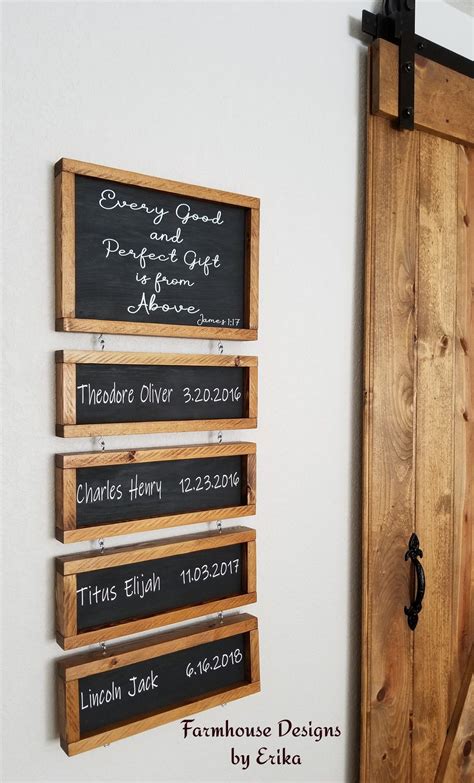 Every Good
and
Perfect Gift
is from
Above
James 1:17
Theodore Oliver 3.20.2016
Charles Henry 12.23.2016
Titus Elijah 11.03.2017
Lincoln Jack 6.16.2018
Farmhouse Designs
by Erika